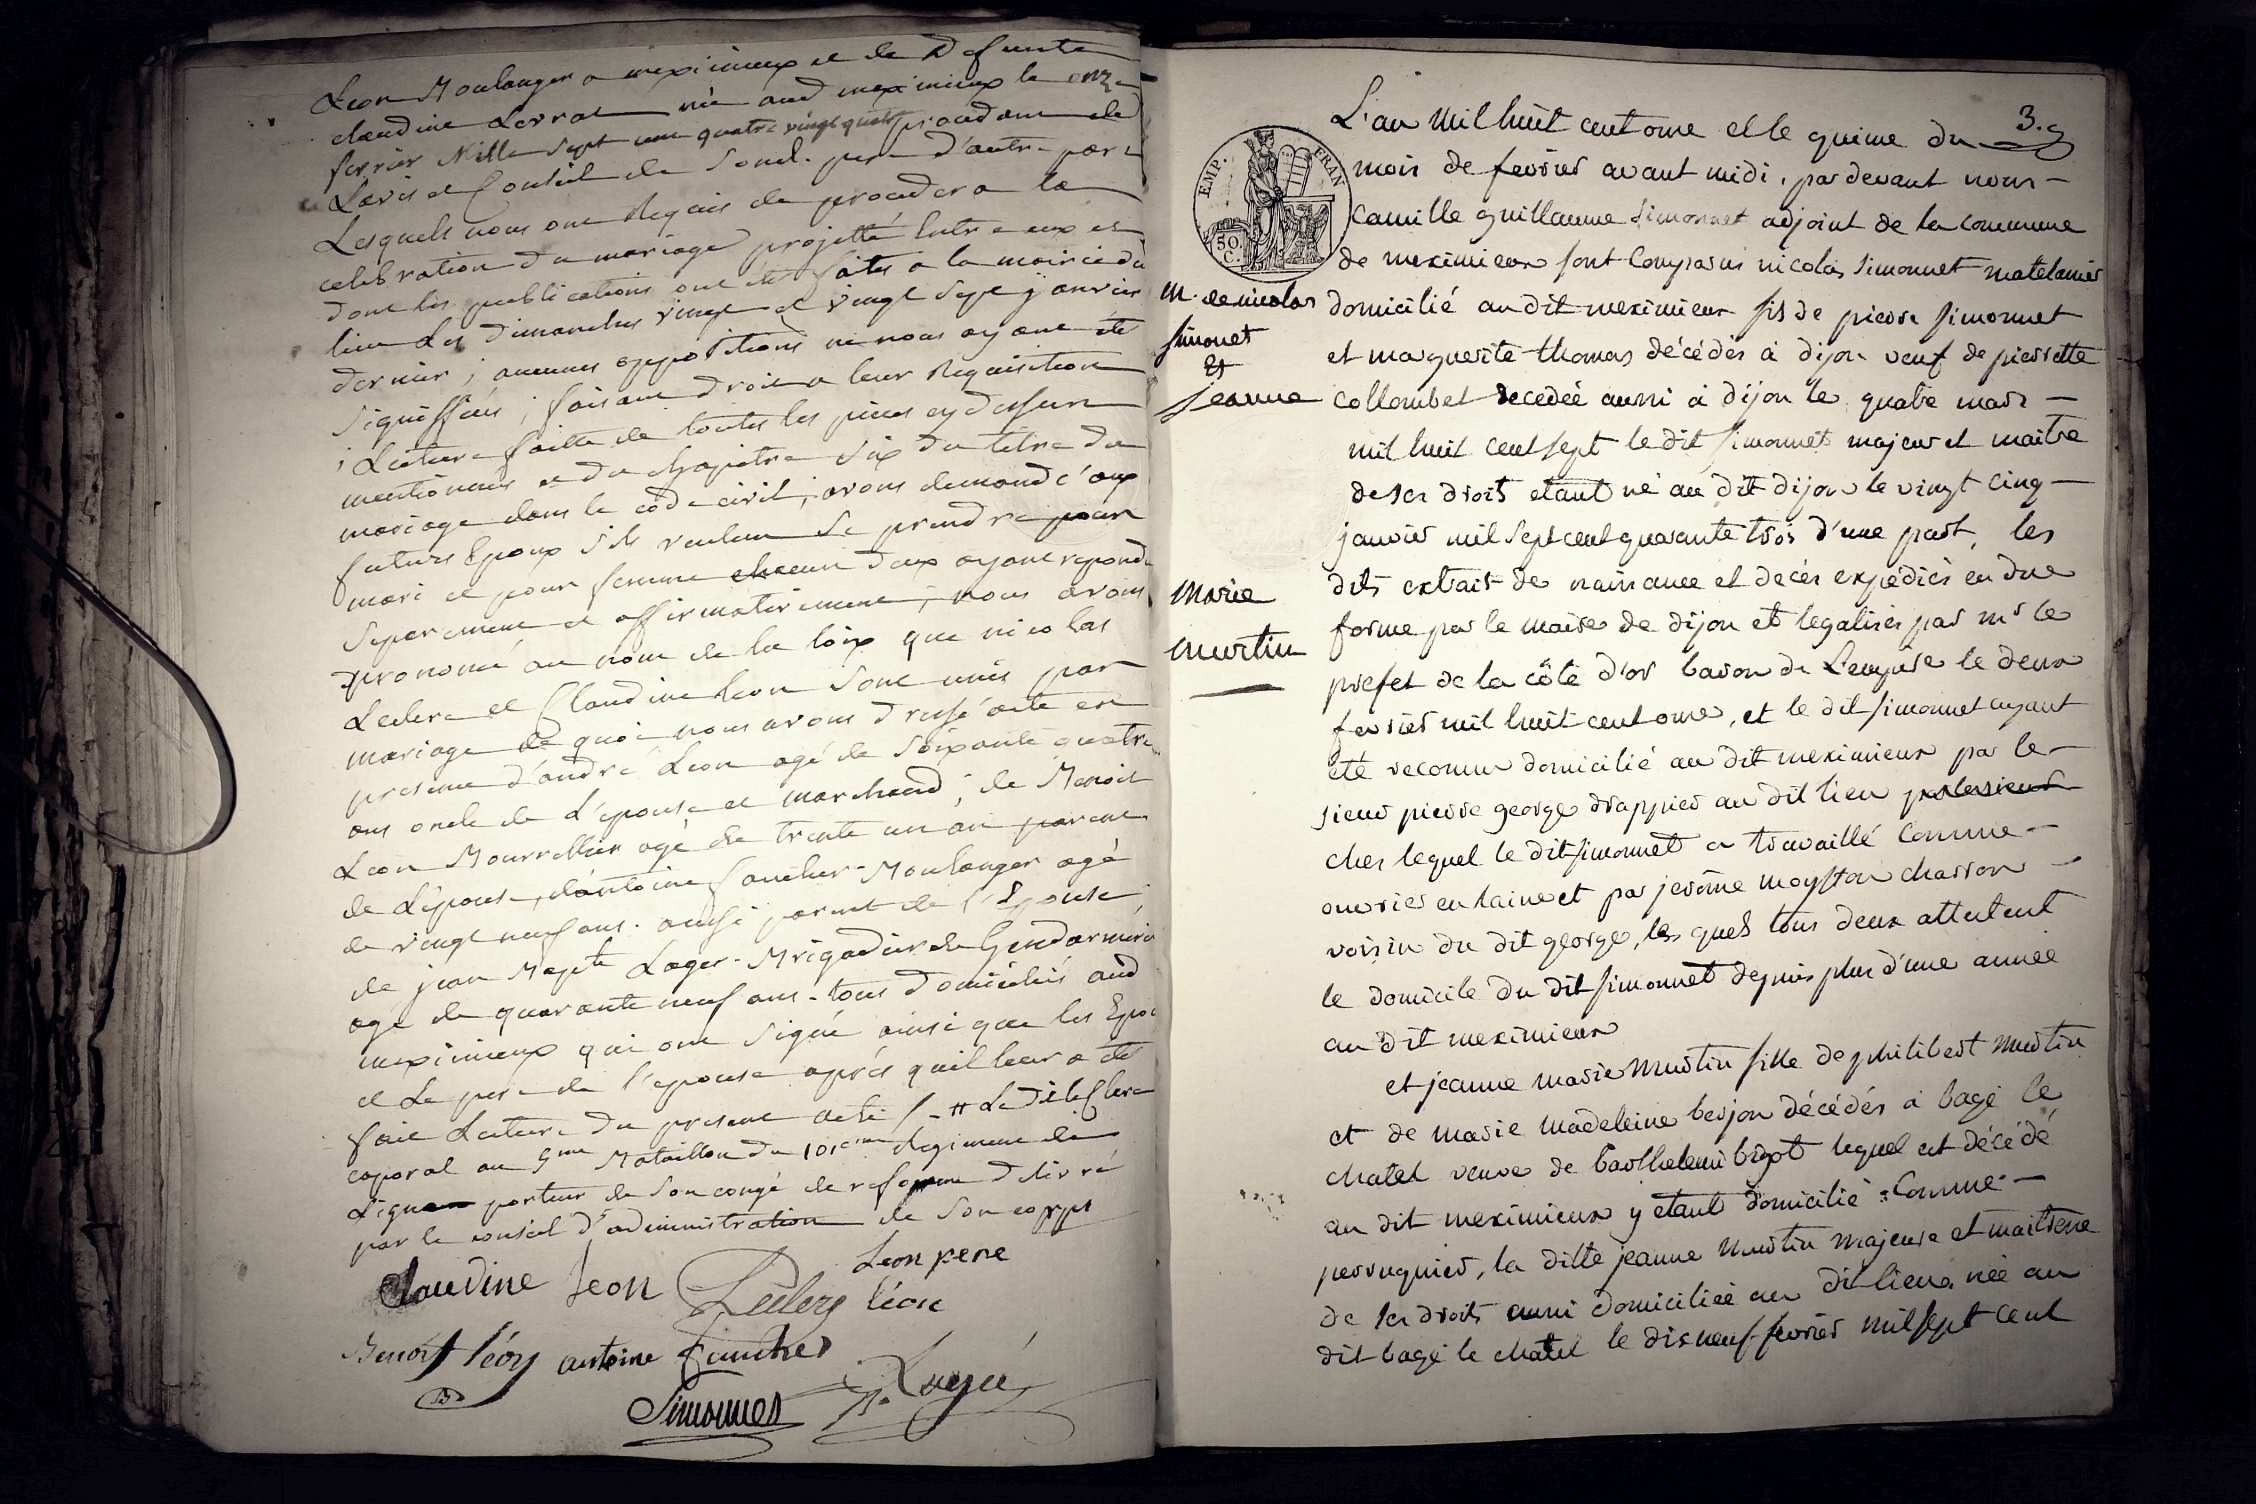 Leon Boulanger a meximieux et de Defunte
claudine Levrat née aud meximieux le onze
fevrier Mille Sept cent quatre vingt quatre procedant de
L'avis et Conseil de Sond. pere d'autre part
Lesquels nous ont Requis de proceder a la
celebration du mariage projetté Entre eux et
dont les publications ont été faites a la mairie du
lieu Les dimanches vingt et vingt Sept janvier
dernier ; aucunes oppositions ne nous ayant été
Signiffiées ; faisant droit a leur Requisition
; Lecture faitte de toutes les pieces cy dessus
mentionnées et du chapitre Six du titre du
mariage dans le code civil ; avons demandé aux
futurs Epoux S'ils veulent Se prendre pour
mari et pour femme chacun d'eux ayant repondu
Separement et affirmativement ; nous avons
prononcé au nom de la loix que nicolas
Leclerc et Claudine Leon Sont unis par
mariage de quoi nous avons dressé acte en
presence d'andré Leon agé de Soixante quatre
ans oncle de L'epouse et marchand ; de Benoit
Leon Bourrellier agé de trente un an parent
de L'epouse, d'antoine faucher Boulanger agé
de vingt neuf ans. aussi parent de l'Epouse ;
de jean Bapte Loger Brigadier de Gendarmerie
agé de quarante neuf ans. tous domiciliés aud
meximieux qui ont Signé ainsi que les Epoux
et Le pere de l'epouse aprés qu'il leur a été
fait Lecture du present acte Le dit leclerc
caporal au 5me Bataillon du 101eme Regiment de
Ligne porteur de Son congé de reforme delivré
par le conseil d'administration de Son corps
Claudine Leon Leclerc Leon pere
léon
Benoit léon antoine faucher
Simonnet Logé
3.
L'an Mil huit cent onze et le quinze du
EMP. FRAN
50. C.
mois de fevrier avant midi, par devant nous
Camille guillaume Simonnet adjoint de la commune
de meximieux sont Comparus nicolas Simonnet matelassier
M. de nicolas
Simonet
et
jeanne
Marie
Murtin
domicilié au dit meximieux fils de pierre Simonnet
et marguerite thomas décédés à dijon veuf de pierrette
Collombet decedée aussi à dijon le quatre mars
mil huit cent sept le dit Simonnet majeur et maitre
de ses droits etant né au dit dijon le vingt cinq
janvier mil sept cent quarante trois d'une part, les
dits extrait de naissance et decés expédiés en due
forme par le maire de dijon et legalisés par mr le
prefet de la côte d'or baron de L'empire le deux
fevrier mil huit cent onze, et le dit Simonnet ayant
été reconnu domicilié au dit meximieux par le
sieur pierre george drappier au dit lieu par le sieur
chez lequel le dit Simonnet a travaillé Comme
ouvrier en laine et par jerôme charron
voisin du dit george, les quels tous deux attestent
le domicile du dit Simonnet depuis plus d'une année
au dit meximieux
et jeanne marie Murtin fille de philibert Murtin
et de marie madeleine berjon décédés à bagé le
chatel veuve de barthelemi bigot lequel est décédé
au dit meximieux y etant domicilié Comme
perruquier, la ditte jeanne Murtin majeure et maitresse
de ses droits aussi domiciliée au dit lieu, née au
dit bagé le chatel le dix neuf fevrier mil sept cent